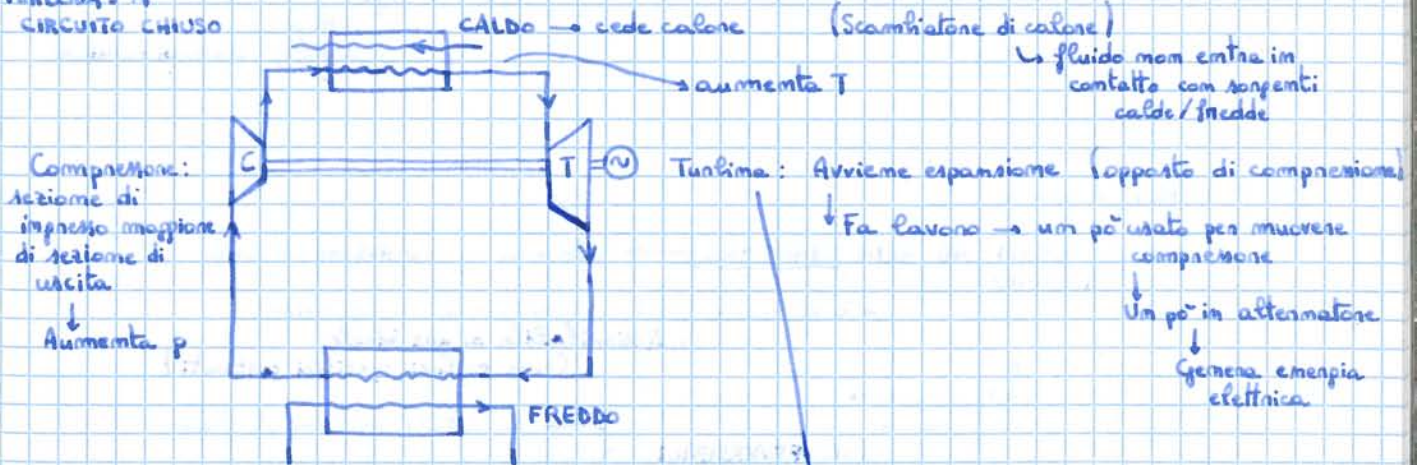 CIRCUITO CHIUSO
CALDO → cede calore (Scambiatore di calore)
↳ fluido non entra in
contatto con sorgenti
calde/fredde
→ aumenta T
Compressore:
sezione di
ingresso maggiore
di sezione di
uscita
↓
Aumenta p
C
T
~
Turbina: Avviene espansione (opposto di compressione)
↓ Fa lavoro → un pò usato per muovere
compressore
↓
Un pò in alternatore
↓
Genera energia
elettrica
FREDDO